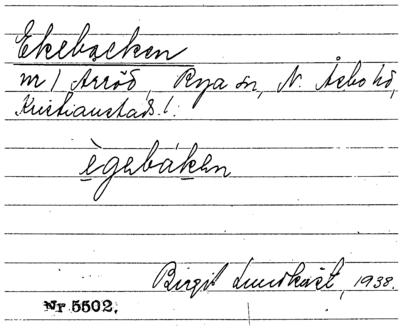 Ekebacken
m / Arröd, Rya sn, N. Åsbo hd,
Kristianstads l.
ègebáken
Birgit Lundkvist, 1938.
Nr 5502.